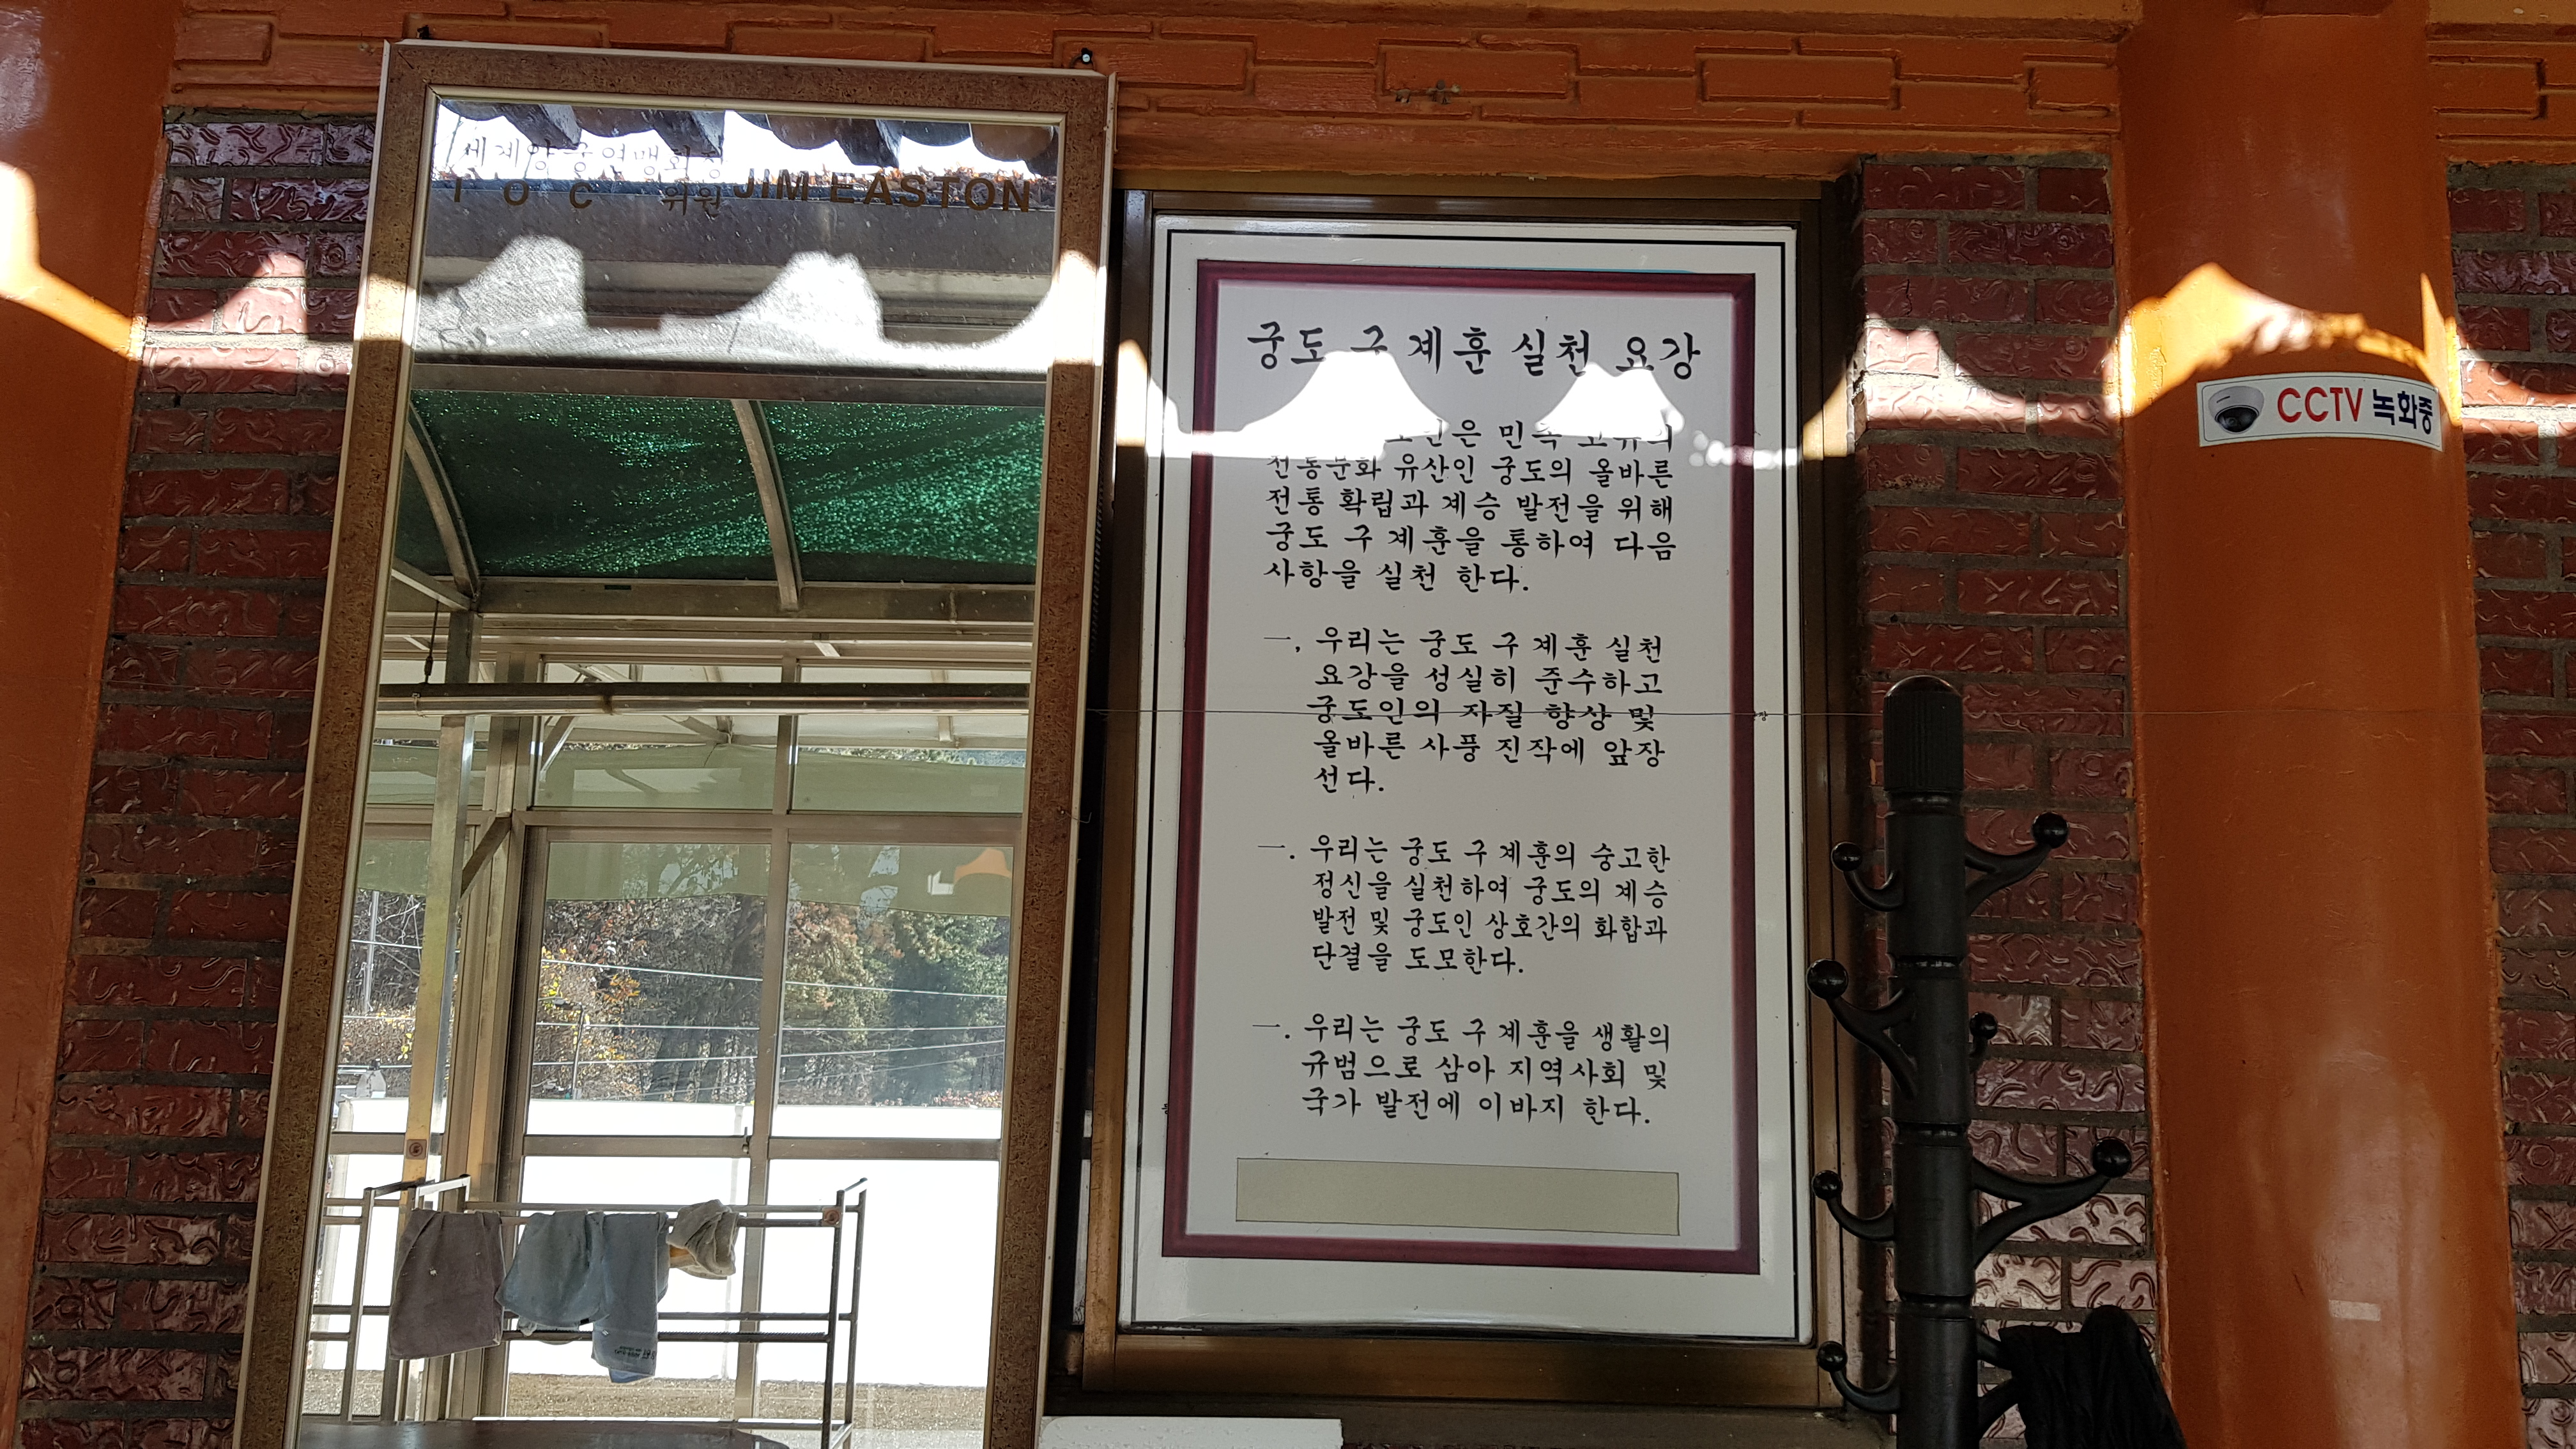 세계양궁연맹회장
I O C 위원 JIM EASTON
궁도 구 계훈 실천 요강
민족 고유의
전통문화 유산인 궁도의 올바른
전통 확립과 계승 발전을 위해
궁도 구 계훈을 통하여 다음
사항을 실천 한다.
一, 우리는 궁도 구 계훈 실천
요강을 성실히 준수하고
궁도인의 자질 향상 및
올바른 사풍 진작에 앞장
선다.
一. 우리는 궁도 구 계훈의 숭고한
정신을 실천하여 궁도의 계승
발전 및 궁도인 상호간의 화합과
단결을 도모한다.
一. 우리는 궁도 구 계훈을 생활의
규범으로 삼아 지역사회 및
국가 발전에 이바지 한다.
CCTV 녹화중